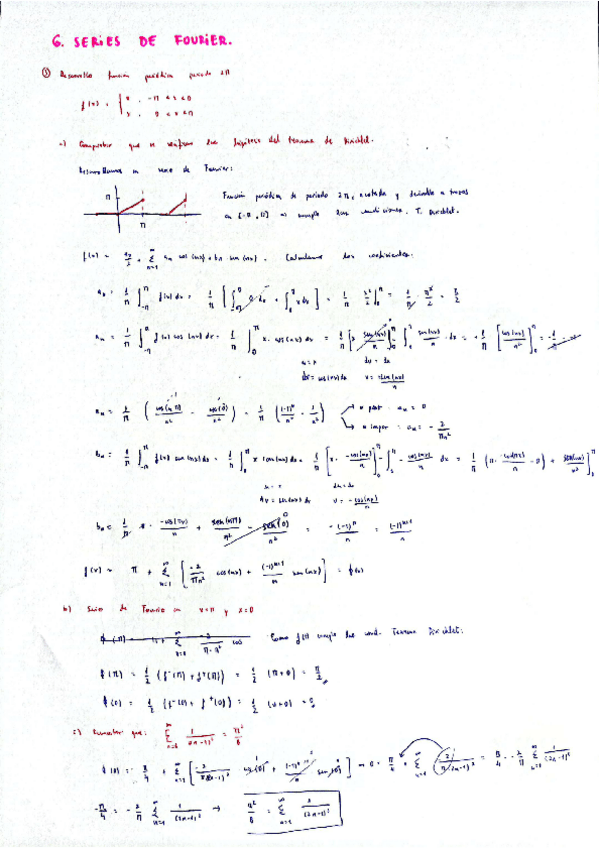 6. SERIES DE FOURIER.
① Desarrollo función periódica periodo 2π
f(x) = { x , -π < x < 0
x , 0 < x < π
a) Comprobar que se verifican las hipótesis del teorema de Dirichlet.
Desarrollamos en serie de Fourier:
π
π
Función periódica de periodo 2π, acotada y derivable a trozos
en [-π, π] cumple las condiciones. T. Dirichlet.
f(x) ~ a₀/2 + Σ_{n=1}^∞ aₙ cos(nx) + bₙ sen(nx). Calculamos los coeficientes:
a₀ = 1/π ∫_{-π}^{π} f(x) dx = 1/π [∫_{-π}^{0} 0 dx + ∫_{0}^{π} x dx] = 1/π x²/2 |_0^π = 1/π · π²/2 = π/2
aₙ = 1/π ∫_{-π}^{π} f(x) cos(nx) dx = 1/π ∫_0^π x · cos(nx) dx = 1/π [x sen(nx)/n]_0^π - ∫_0^π sen(nx)/n · dx = + 1/π [cos(nx)/n²]_0^π
u = x du = dx
dv = cos(nx) dx v = sen(nx)/n
aₙ = 1/π (cos(nπ)/n² - cos(0)/n²) = 1/π ((-1)ⁿ/n² - 1/n²) → n par : aₙ = 0
→ n impar : aₙ = - 2/πn²
bₙ = 1/π ∫_{-π}^{π} f(x) sen(nx) dx = 1/π ∫_0^π x sen(nx) dx = 1/π [x · -cos(nx)/n]_0^π - ∫_0^π - cos(nx)/n dx = 1/π (π · -cos(nπ)/n - 0) + sen(nx)/n² ]_0^π
u = x du = dx
dv = sen(nx) dx v = - cos(nx)/n
bₙ = 1/π π · -cos(nπ)/n + sen(nπ)/n² - sen(0)/n² = -(-1)ⁿ/n = (-1)ⁿ⁺¹/n
f(x) ~ π + Σ_{n=1}^∞ [-2/πn² cos(nx) + (-1)ⁿ⁺¹/n sen(nx)] = ϕ(x)
b) Serie de Fourier en x=π y x=0
Como f(x) cumple las cond. Teorema Dirichlet:
ϕ(π) = 1/2 (f⁻(π) + f⁺(π)) = 1/2 (π + 0) = π/2
ϕ(0) = 1/2 (f⁻(0) + f⁺(0)) = 1/2 (0 + 0) = 0
c) Demostrar que: Σ_{n=1}^∞ 1/(2n-1)² = π²/8
ϕ(0) = π/4 + Σ_{n=1}^∞ [-2/π(2n-1)² cos(0) + (-1)ⁿ⁺¹/n sen(0)] = 0 = π/4 + Σ_{n=1}^∞ (-2/π(2n-1)²) = π/4 - 2/π Σ_{n=1}^∞ 1/(2n-1)²
-π/4 = - 2/π Σ_{n=1}^∞ 1/(2n-1)² → π²/8 = Σ_{n=1}^∞ 1/(2n-1)²